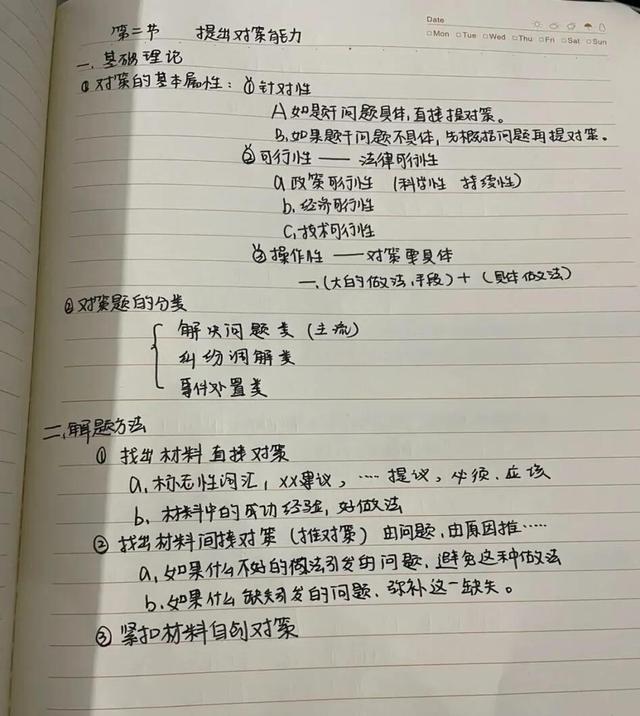 第二节 提出对策能力
Date
□Mon □Tue □Wed □Thu □Fri □Sat □Sun
一、基础理论
①对策的基本属性：①针对性
A如题干问题具体，直接提对策。
B，如果题干问题不具体，先概括问题再提对策。
②可行性 —— 法律可行性
a政策可行性 （科学性 持续性）
b，经济可行性
C，技术可行性
③操作性 —— 对策要具体
一、（大的做法、手段）+（具体做法）
②对策题的分类
解决问题类（主流）
纠纷调解类
事件处置类
二、解题方法
① 找出材料直接对策
a，标志性词汇，XX建议，…… 提议，必须、应该
b，材料中的成功经验，好做法
② 找出材料间接对策（推对策）由问题，由原因推……
a，如果什么不好的做法引发的问题，避免这种做法
b，如果什么缺失引发的问题，弥补这一缺失。
③ 紧扣材料自创对策